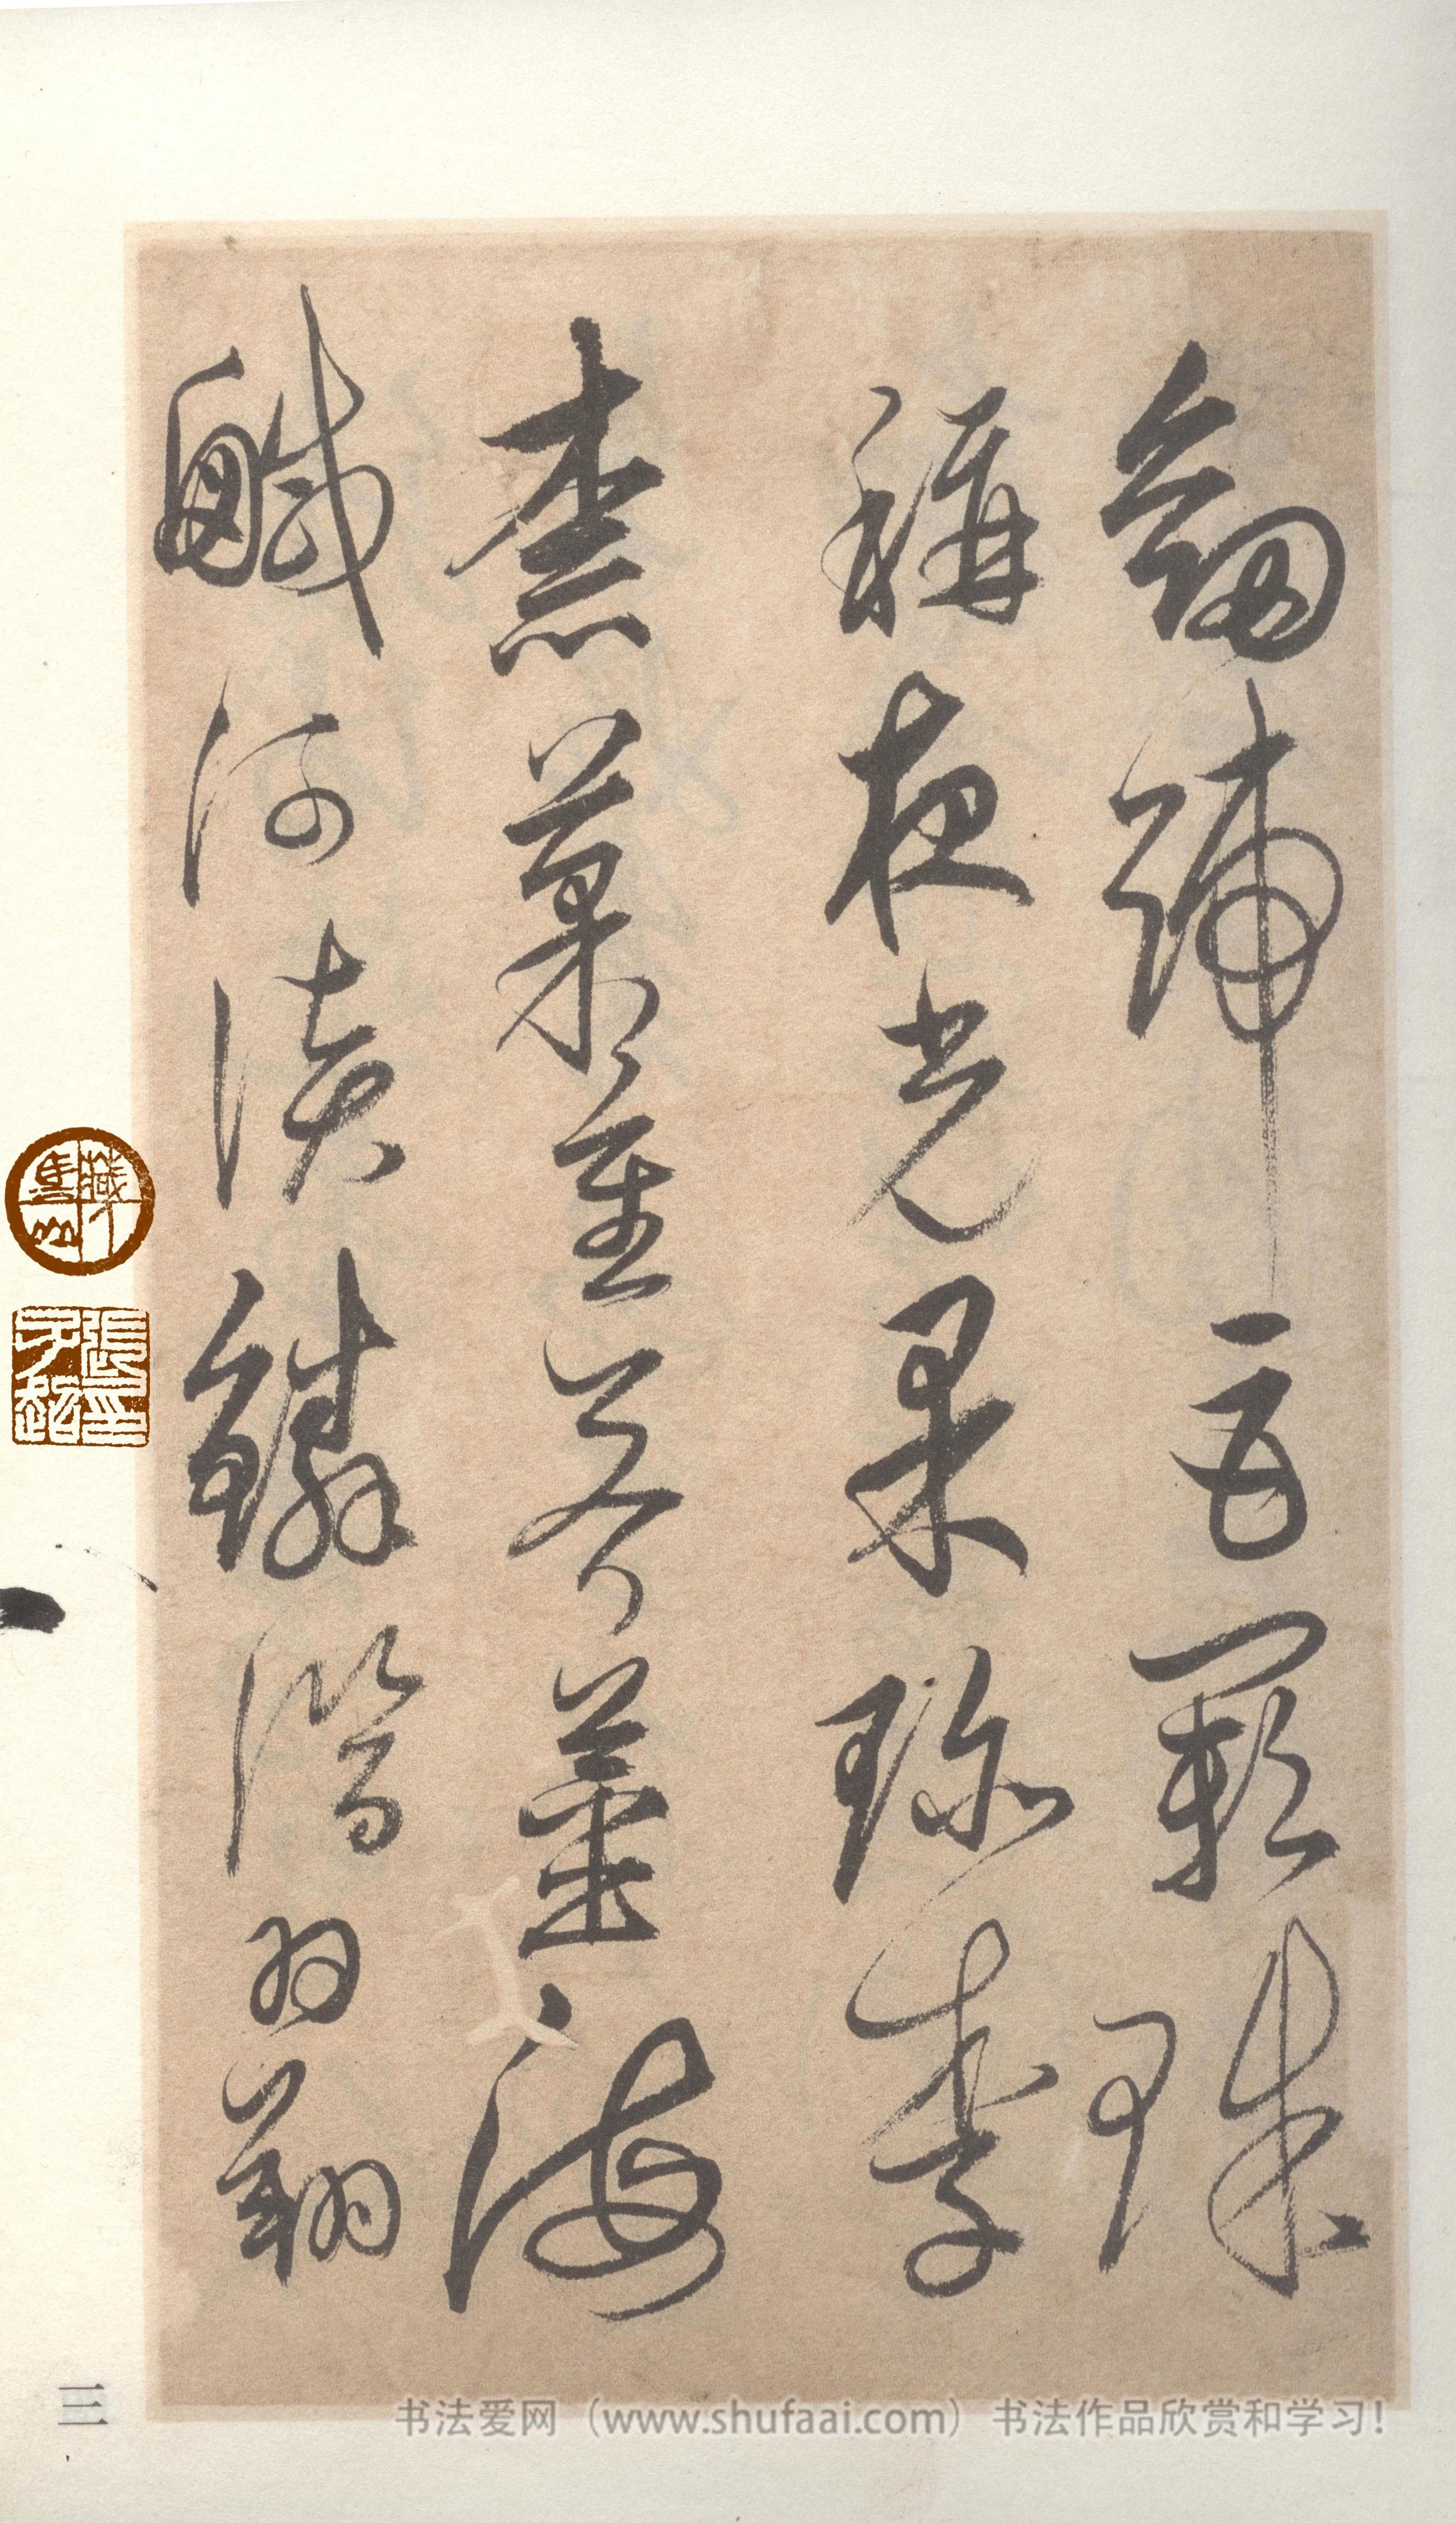 劒號巨闕珠
稱夜光果珍李
柰菜重芥薑海
鹹河淡鱗潛羽翔
三
书法爱网（www.shufaai.com）书法作品欣赏和学习！